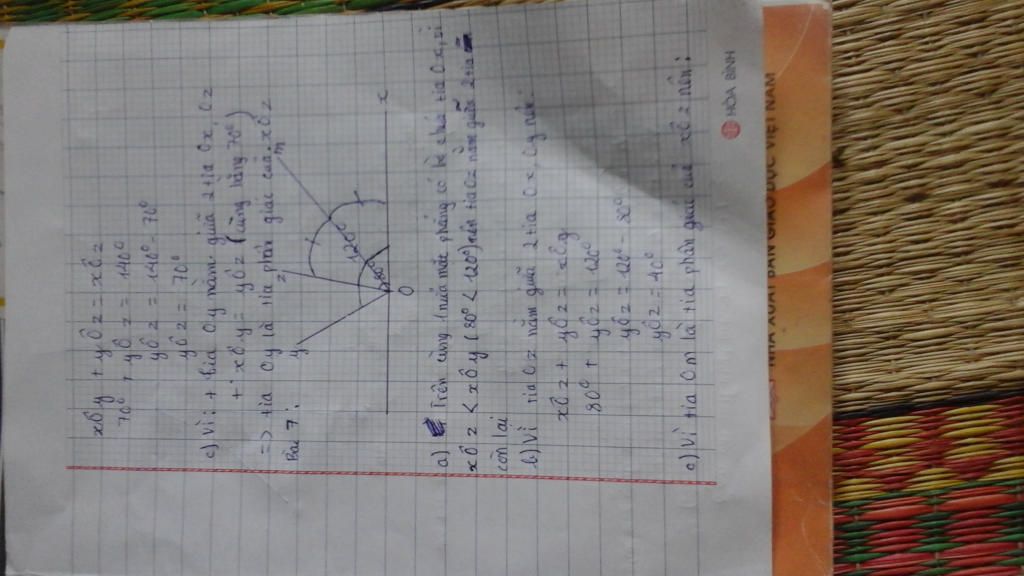 xôy + yôz = xôz
70° + yôz = 140°
yôz = 140° - 70°
yôz = 70°
c) Vì: + tia Oy nằm giữa 2 tia Ox, Oz
+ xôy = yôz (cùng bằng 70°)
=> tia Oy là tia phân giác của xôz
Bài 7:
y
z
m
80°
120°
O
x
a) Trên cùng 1 nửa mặt phẳng có bờ chứa tia Ox, vì
xôz < xôy (80° < 120°) nên tia Oz nằm giữa 2 tia
còn lại
b) Vì tia Oz nằm giữa 2 tia Ox, Oy nên:
xôz + yôz = xôy
80° + yôz = 120°
yôz = 120° - 80°
yôz = 40°
c) Vì tia Om là tia phân giác của xôz nên:
HÒA BÌNH
NHÀ XUẤT BẢN GIÁO DỤC VIỆT NAM